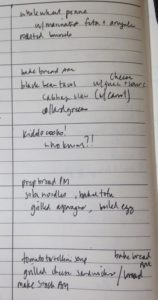 whole wheat penne
w/ marinated feta + arugula
roasted
bake bread AM
black bean tacos w/ guac + sour
cheese
cabbage slaw (w/
collard greens
kiddo cooks!
who knows?!
prep bread PM
soba noodles, baked tofu
grilled asparagus, boiled egg
tomato tortellini soup
bake bread
AM
grilled cheese sandwiches / bread
make stock AM